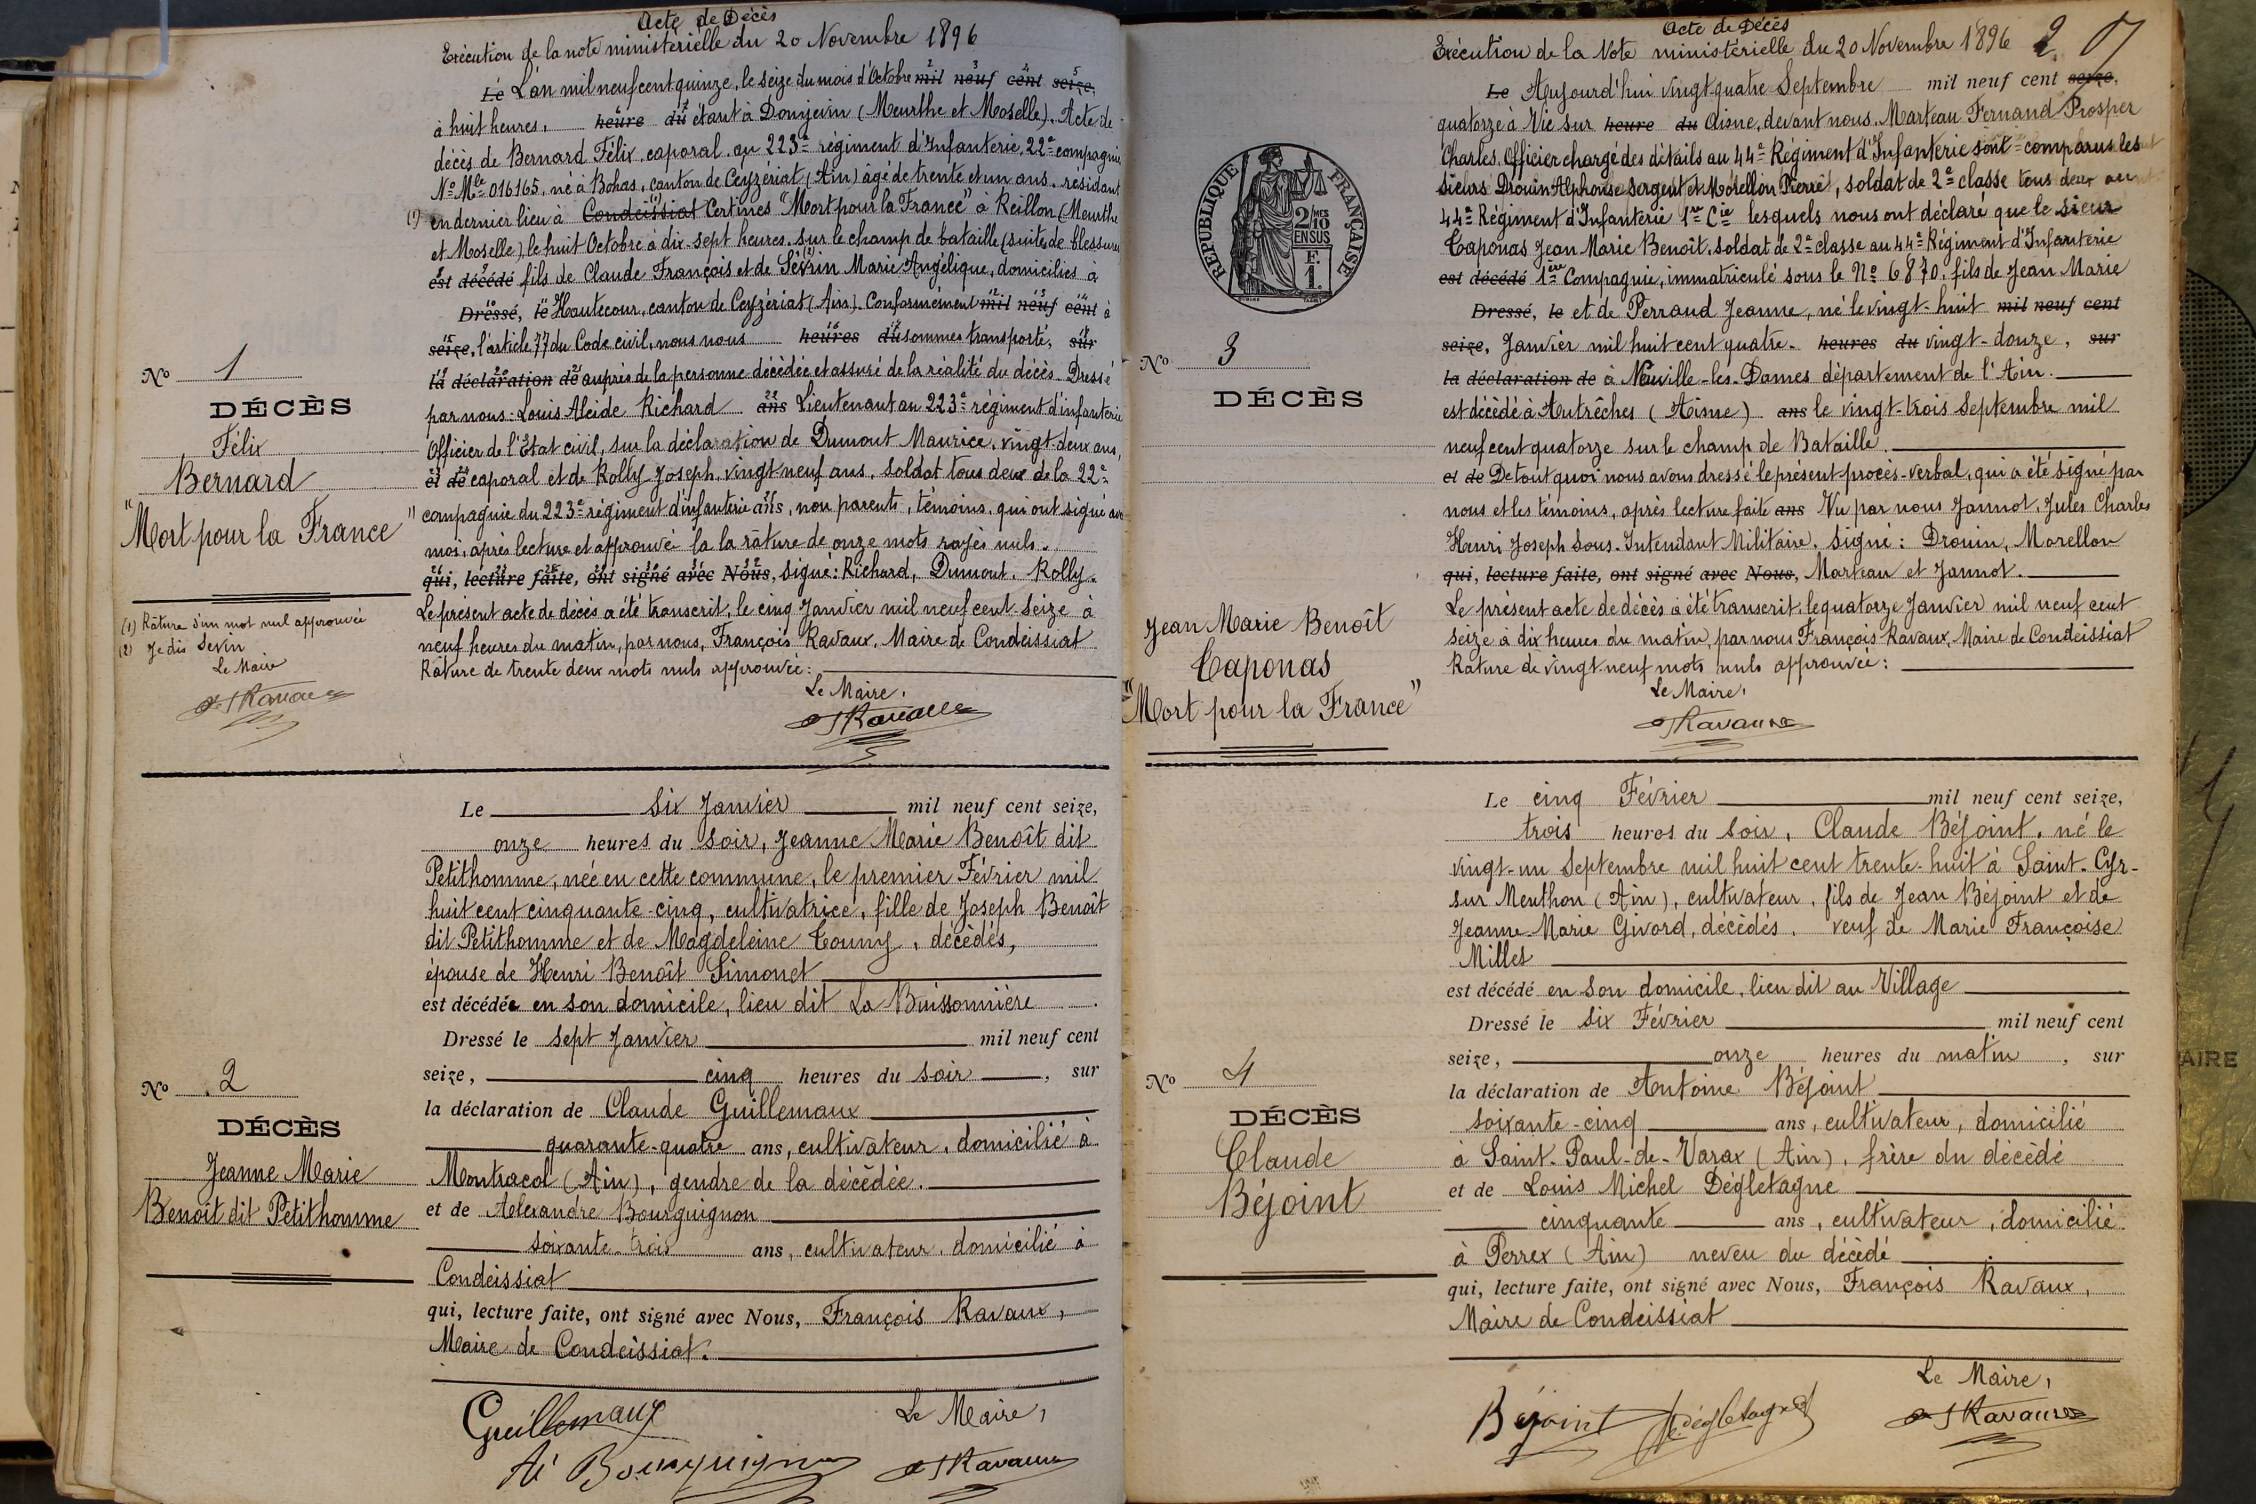 Acte de Décès
Exécution de la note ministérielle du 20 Novembre 1896
Le L'an mil neuf cent quinze, le seize du mois d'Octobre mil neuf cent seize,
à huit heures, heure du étant à Domjevin (Meurthe et Moselle). Acte de
décès de Bernard Félix, caporal au 223e régiment d'Infanterie, 22e compagnie
No Mle 016165, né à Bohas, canton de Ceyzériat (Ain) âgé de trente et un ans, résidant
(1) en dernier lieu à Condeissiat Certines "Mort pour la France" à Reillon (Meurthe
et Moselle), le huit Octobre à dix-sept heures, sur le champ de bataille (suites de blessures
est décédé fils de Claude François et de Sévrin (2) Marie Angélique, domiciliés à
Dressé, le Hautecour, canton de Ceyzériat (Ain). Conformément mil neuf cent à
seize, l'article 77 du Code civil, nous nous heures du sommes transporté, sur
la déclaration de auprès de la personne décédée et assuré de la réalité du décès. Dressé
par nous: Louis Alcide Richard ans Lieutenant au 223e régiment d'infanterie
Officier de l'Etat civil, sur la déclaration de Dumont Maurice, vingt-deux ans,
et de caporal et de Rolly Joseph, vingt neuf ans, soldat tous deux de la 22e
compagnie du 223e régiment d'infanterie ans, non parents, témoins, qui ont signé avec
moi, après lecture et approuvé la la râture de onze mots rayés nuls.
qui, lecture faite, ont signé avec Nous, signé: Richard, Dumont, Rolly.
Le présent acte de décès a été transcrit, le cinq Janvier mil neuf cent-seize à
neuf heures du matin, par nous, François Ravaux, Maire de Condeissiat
Râture de trente deux mots nuls approuvée:
Le Maire,
F Ravaux
No 1
DÉCÈS
Félix
Bernard
"Mort pour la France"
(1) Râture d'un mot nul approuvée
(2) Je dis Sevin
Le Maire
F Ravaux
Le six Janvier mil neuf cent seize,
onze heures du soir, Jeanne Marie Benoît dit
Petithomme, née en cette commune, le premier Février mil
huit cent cinquante-cinq, cultivatrice, fille de Joseph Benoît
dit Petithomme et de Magdeleine Couny, décédés,
épouse de Henri Benoît Simonet
est décédée en son domicile, lieu dit La Buissonnière
Dressé le sept Janvier mil neuf cent
seize, cinq heures du soir, sur
la déclaration de Claude Guillemaux
quarante-quatre ans, cultivateur, domicilié à
Montracol (Ain), gendre de la décédée.
et de Alexandre Bourguignon
soixante-trois ans, cultivateur, domicilié à
Condeissiat
qui, lecture faite, ont signé avec Nous, François Ravaux,
Maire de Condeissiat.
Guillemaux
Le Maire,
Al Bourguignon
F Ravaux
No 2
DÉCÈS
Jeanne Marie
Benoît dit Petithomme
Acte de Décès
Exécution de la Note ministérielle du 20 Novembre 1896
2
Le Aujourd'hui vingt-quatre Septembre mil neuf cent seize,
quatorze à Vic sur heure du Aisne, devant nous, Marteau Fernand Prosper
Charles, Officier chargé des détails au 44e Régiment d'Infanterie sont comparus les
sieurs Drouin Alphonse sergent et Morellon Pierre, soldat de 2e classe tous deux au
44e Régiment d'Infanterie 1re Cie lesquels nous ont déclaré que le sieur
Caponas Jean Marie Benoît, soldat de 2e classe au 44e Régiment d'Infanterie
est décédé 1ère Compagnie, immatriculé sous le No 6870, fils de Jean Marie
Dressé, le et de Perraud Jeanne, né le vingt-huit mil neuf cent
seize, Janvier mil huit cent quatre- heures du vingt-douze, sur
la déclaration de à Neuville-les-Dames département de l'Ain.
est décédé à Autrêches (Aisne) ans le vingt-trois Septembre mil
neuf cent quatorze sur le champ de Bataille.
et de De tout quoi nous avons dressé le présent procès-verbal, qui a été signé par
nous et les témoins, après lecture faite ans Vu par nous Jannot, Jules Charles
Henri Joseph Sous-Intendant Militaire. Signé: Drouin, Morellon
qui, lecture faite, ont signé avec Nous, Marteau et Jannot.
Le présent acte de décès a été transcrit, le quatorze Janvier mil neuf cent
seize à dix heures du matin, par nous François Ravaux, Maire de Condeissiat
Rature de vingt neuf mots nuls approuvée:
Le Maire,
F Ravaux
RÉPUBLIQUE FRANÇAISE
2/10 MES
EN SUS
F.
1.
No 3
DÉCÈS
Jean Marie Benoît
Caponas
"Mort pour la France"
Le cinq Février mil neuf cent seize,
trois heures du soir, Claude Béjoint, né le
vingt-un Septembre mil huit cent trente-huit à Saint-Cyr-
sur Menthon (Ain), cultivateur, fils de Jean Béjoint et de
Jeanne-Marie Givord, décédés, veuf de Marie Françoise
Millet
est décédé en son domicile, lieu dit au Village
Dressé le six Février mil neuf cent
seize, onze heures du matin, sur
la déclaration de Antoine Béjoint
soixante-cinq ans, cultivateur, domicilié
à Saint-Paul-de-Varax (Ain), frère du décédé
et de Louis Michel Dégletagne
cinquante ans, cultivateur, domicilié
à Perrex (Ain) neveu du décédé
qui, lecture faite, ont signé avec Nous, François Ravaux,
Maire de Condeissiat
Le Maire,
Béjoint
Dégletagne
F Ravaux
No 4
DÉCÈS
Claude
Béjoint
AIRE